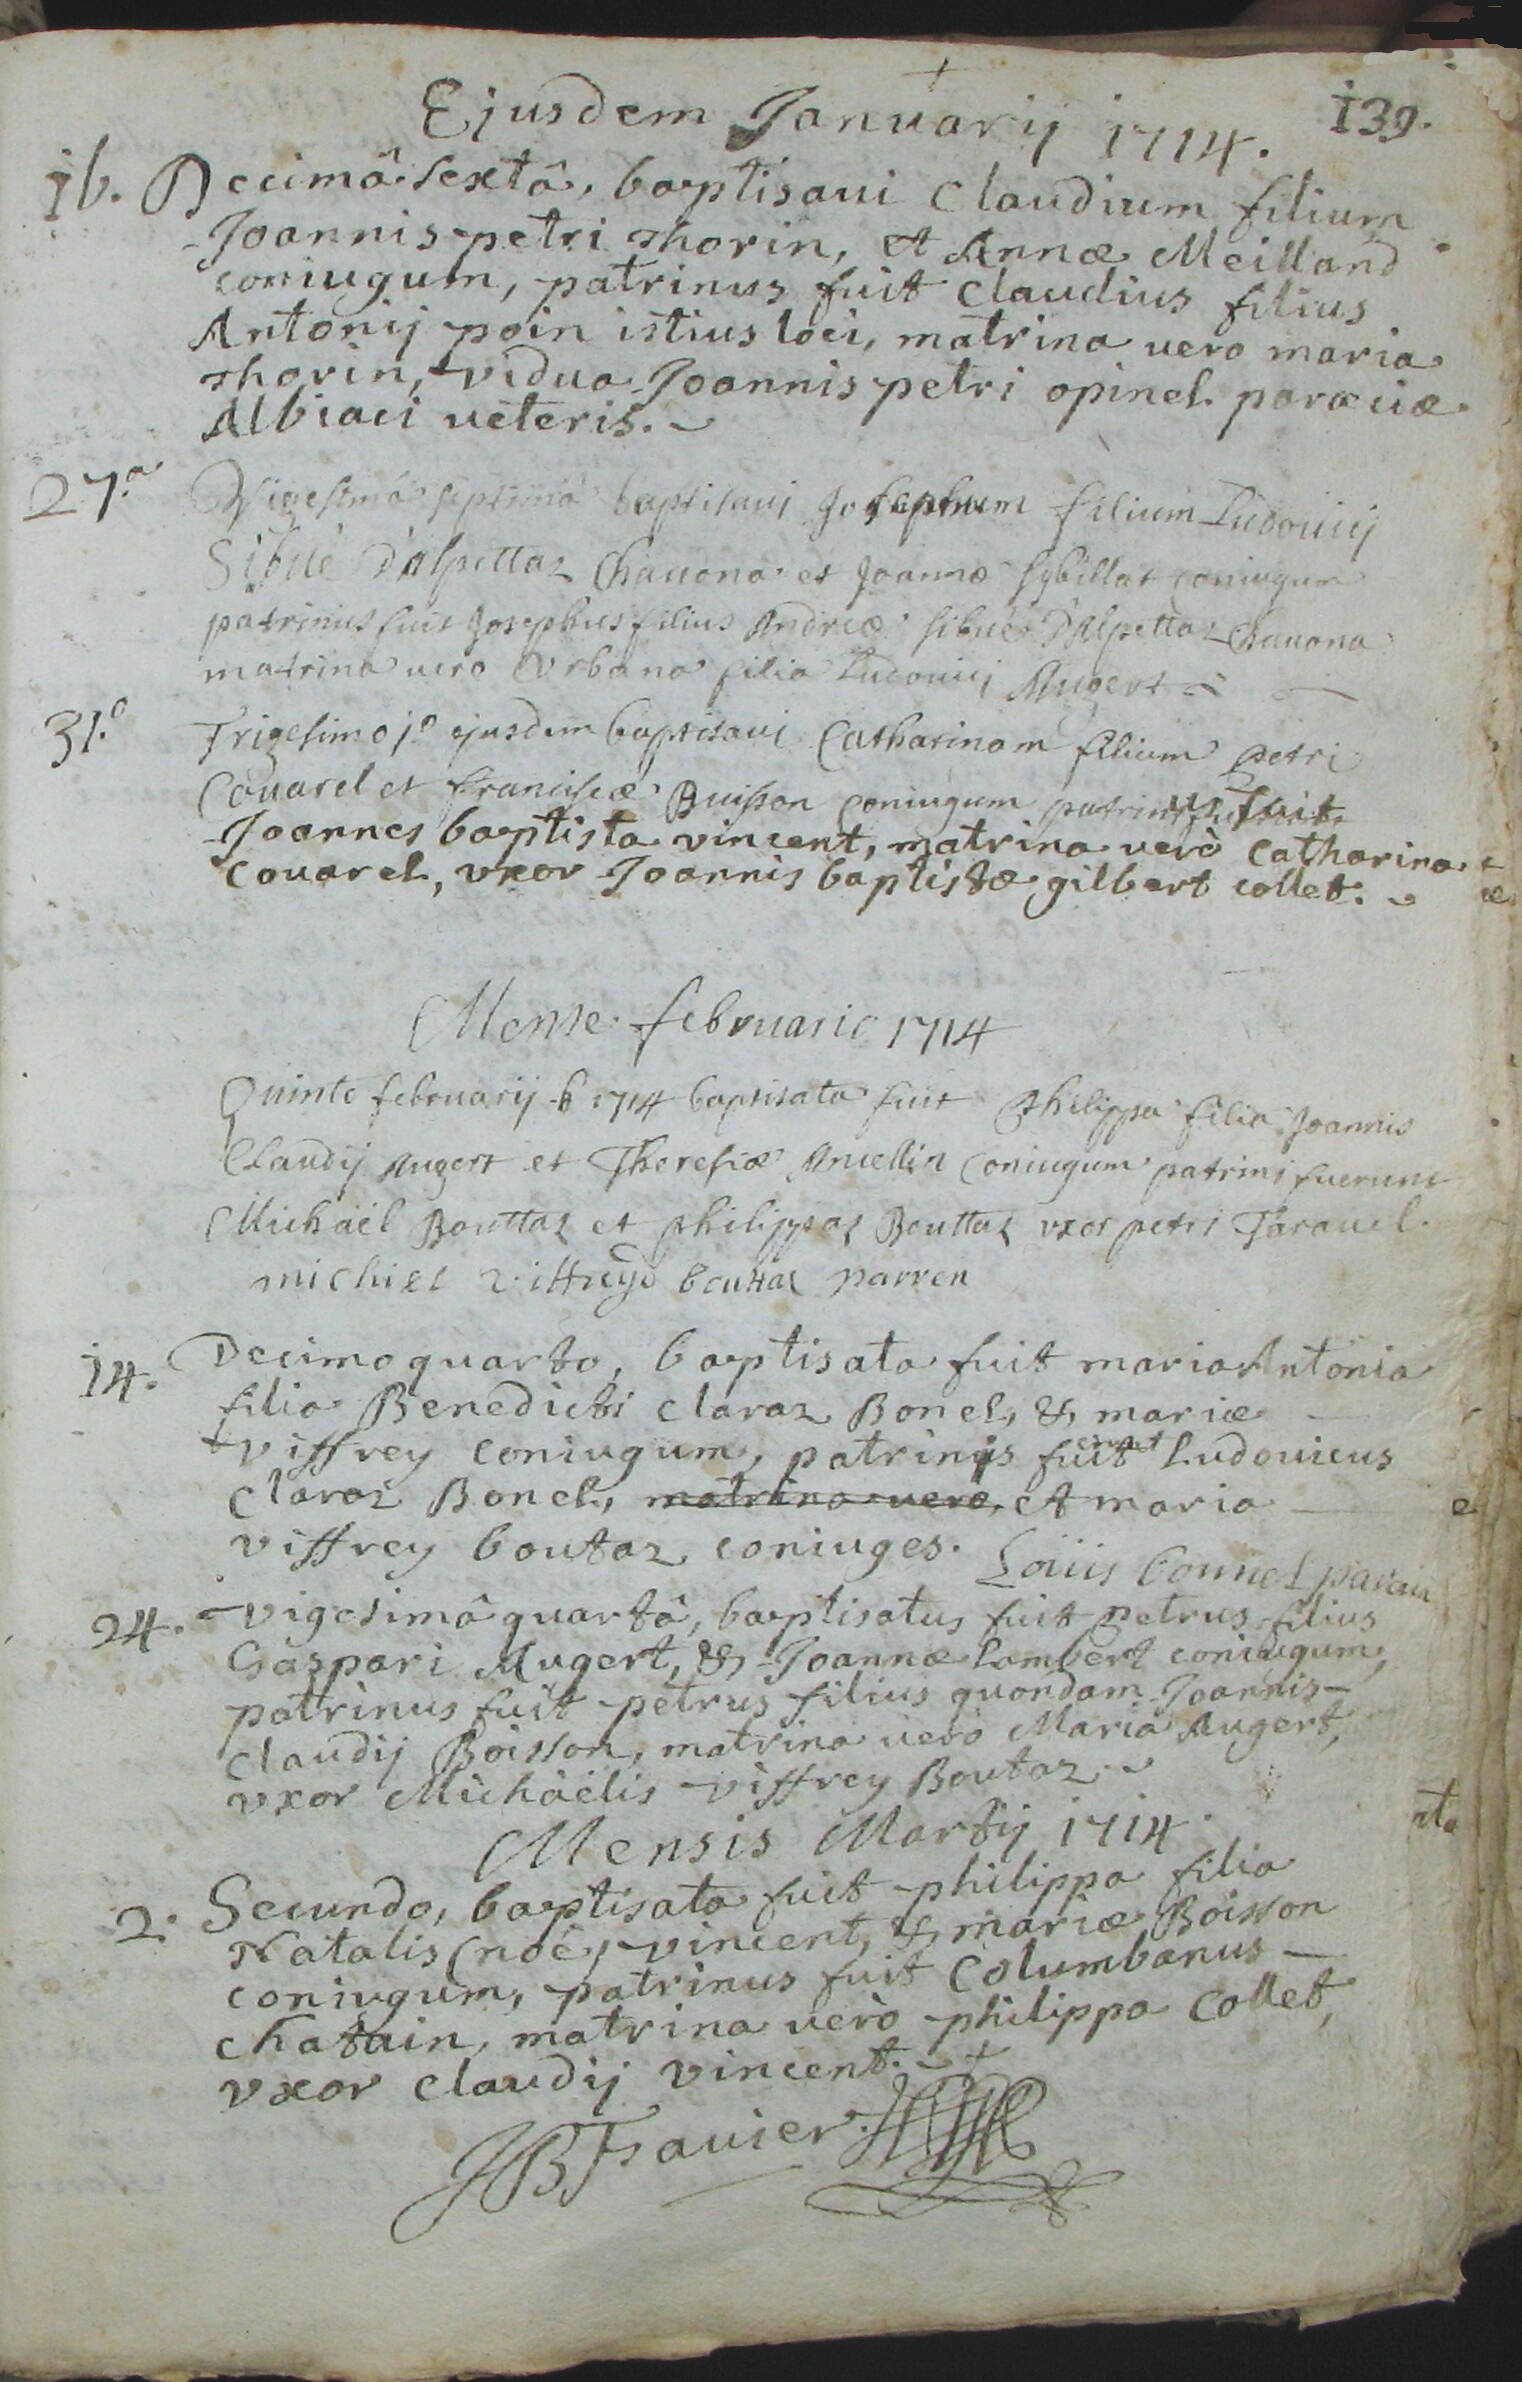 Ejusdem Januarij 1714. 139.
16. Decimâ sextâ, baptisaui Claudium filium
Joannis petri thorin, et Annæ Meilland
coniugum, patrinus fuit Claudius filius
Antonij poin istius loci, matrina vero maria
thorin, vidua Joannis petri opinel paræciæ
Albiaci veteris.
27.a Vigesimâ septimâ baptisaui Josephum filium Ludouici
Sibué D'alpettaz Chauona et Joannæ Sybillat coniugum
patrinus fuit Josephus filius Andreæ Sibué D'Alpettaz Chauona
matrina uero Vrbana filia Ludouici Augert
31.o Trigesimo j.o ejusdem baptisaui Catharinam filium petri
Couarel et franciscæ Buisson coniugum patrinus fuit
Joannes baptista vincent, matrina uerò Catharina
Couarel, vxor Joannis baptistæ gilbert collet.
Mense februario 1714
Quinte februarij 1714 baptisata fuit philippa filia Joannis
Claudij Augert et Theresiæ Ancellin Coniugum patrini fuerunt
Michaël Bouttaz et philippaz Bouttaz vxor petri Tarauel.
michiel viffreyd bouttaz parren
14. Decimoquarto, baptisata fuit maria Antonia
filia Benedicti Claraz Bonel, & mariæ
viffrey coniugum, patrinus fuit Ludouicus
Claraz Bonel, matrina vero, et maria
viffrey boutaz coniuges. Loüis Connel parain
24. vigesimâ quartâ, baptisatus fuit petrus filius
Gaspari Augert, & Joannæ Lambert coniugum,
patrinus fuit petrus filius quondam Joannis
Claudij Boisson, matrina verò Maria Augert,
vxor Michäelis viffrey Boutaz.
Mensis Martij 1714.
2. Secunda, baptisata fuit philippa filia
Natalis (noé) vincent, & mariæ Boisson
coniugum, patrinus fuit Columbanus
Chatain, matrina verò philippa Collet,
vxor Claudij vincent.
JB Fauier